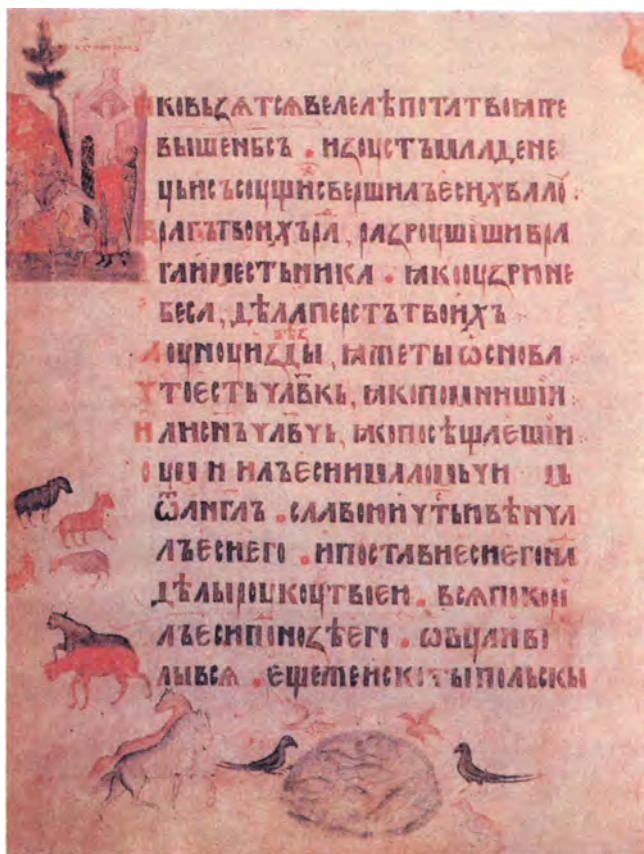 ꙗковьзѧтсѧвелелѣпотатвоꙗпре
вышеньбсъ . изоустъмладене
цьисъсоущисвершилъесихвалоу
врагътвоихъра, разроушишивра
гаиместьника . ꙗкооузрине
беса, дѣлаперстътвоихъ
лоуноуизвѣзды, ꙗжетыѡснова
чтоестьчлвкъ, ꙗкопомнишии
илиснъчлвчь, ꙗкопосѣщаешии
оумнилъесиималомьчи мь
ѿанглъ . славоюичтьювѣнча
лъесиего . ипоставиесиегона
дѣлыроукоутвоею . всѧпокори
лъесипонозѣего . ѡвцаиво
лывсѧ . ещежеискотыпольскы